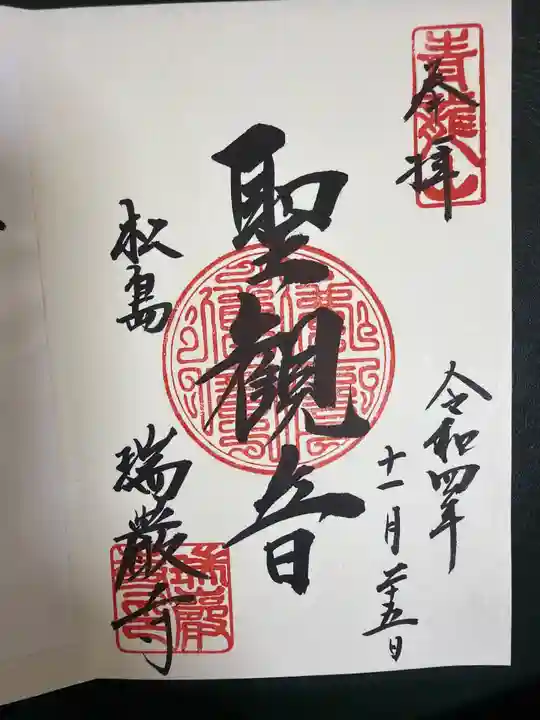 奉拝
青龍山
令和四年
十一月二十五日
聖観音
松島
瑞巌寺
瑞巌